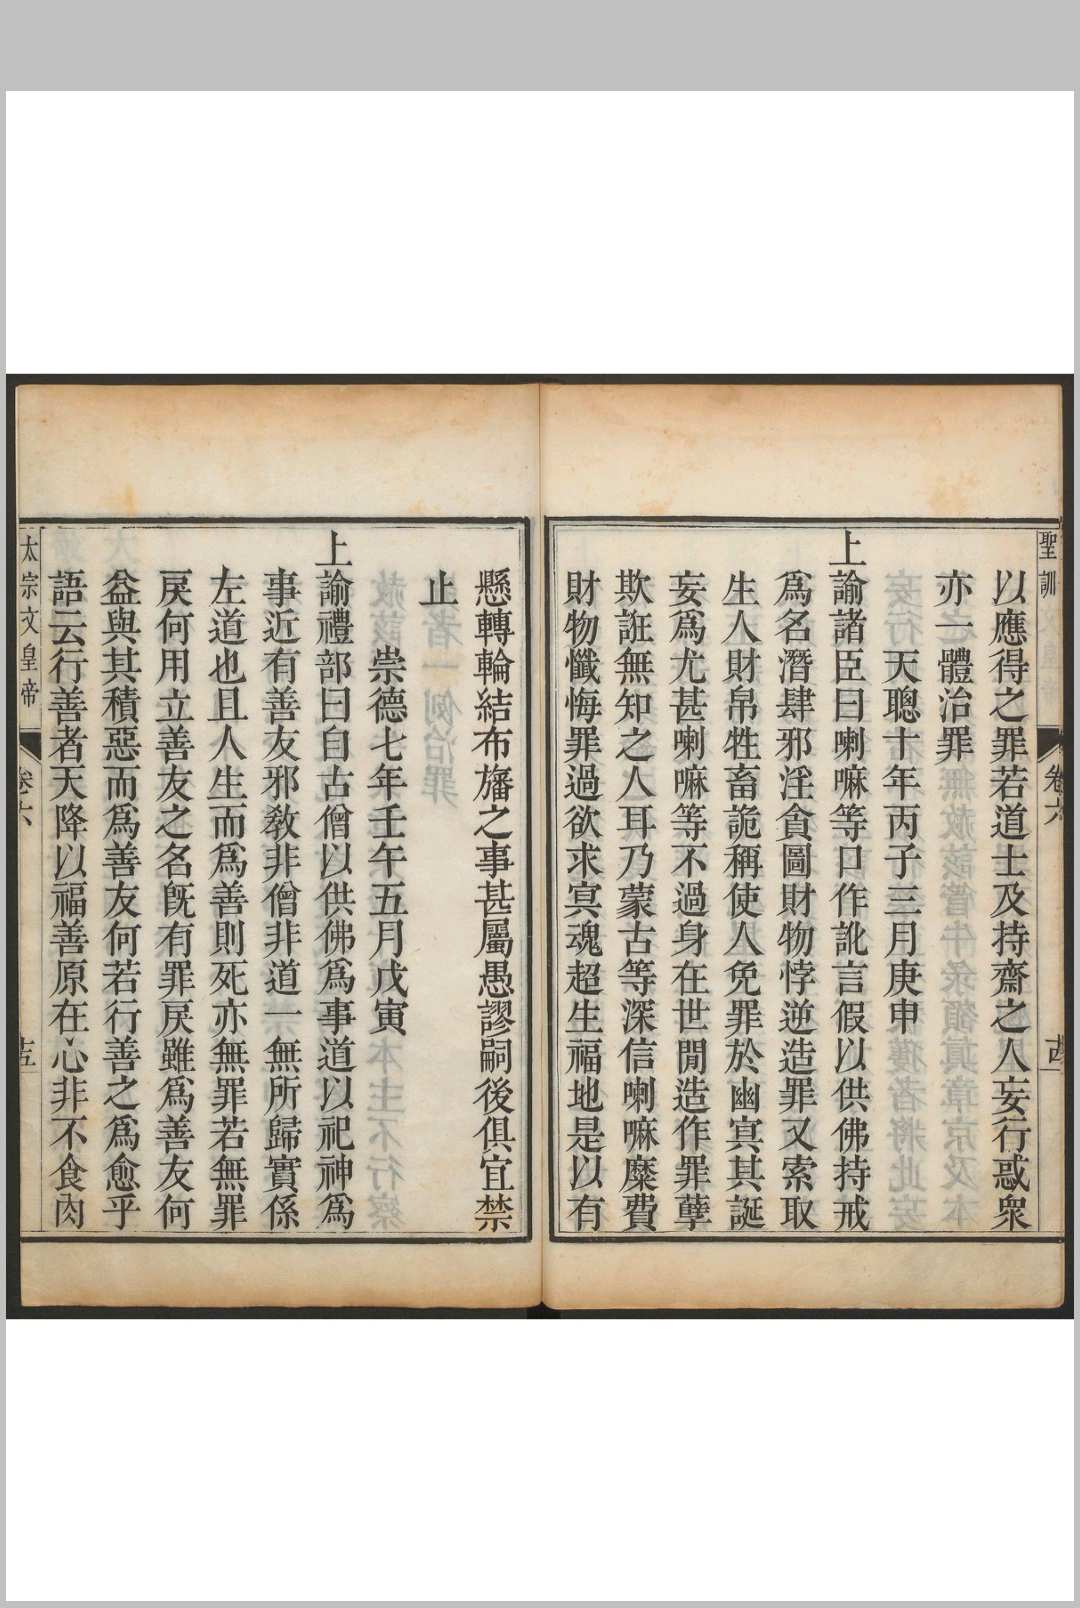 聖訓
卷六
以應得之罪若道士及持齋之人妄行惑衆
亦一體治罪
天聰十年丙子三月庚申
上諭諸臣曰喇嘛等口作訛言假以供佛持戒
爲名潛肆邪淫貪圖財物悖逆造罪又索取
生人財帛牲畜詭稱使人免罪於幽冥其誕
妄爲尤甚喇嘛等不過身在世間造作罪孽
欺誑無知之人耳乃蒙古等深信喇嘛糜費
財物懺悔罪過欲求冥魂超生福地是以有
懸轉輪結布旛之事甚屬愚謬嗣後俱宜禁
止
崇德七年壬午五月戊寅
上諭禮部曰自古僧以供佛爲事道以祀神爲
事近有善友邪教非僧非道一無所歸實係
左道也且人生而爲善則死亦無罪若無罪
戾何用立善友之名既有罪戾雖爲善友何
益與其積惡而爲善友何若行善之爲愈乎
語云行善者天降以福善原在心非不食肉
太宗文皇帝
卷六